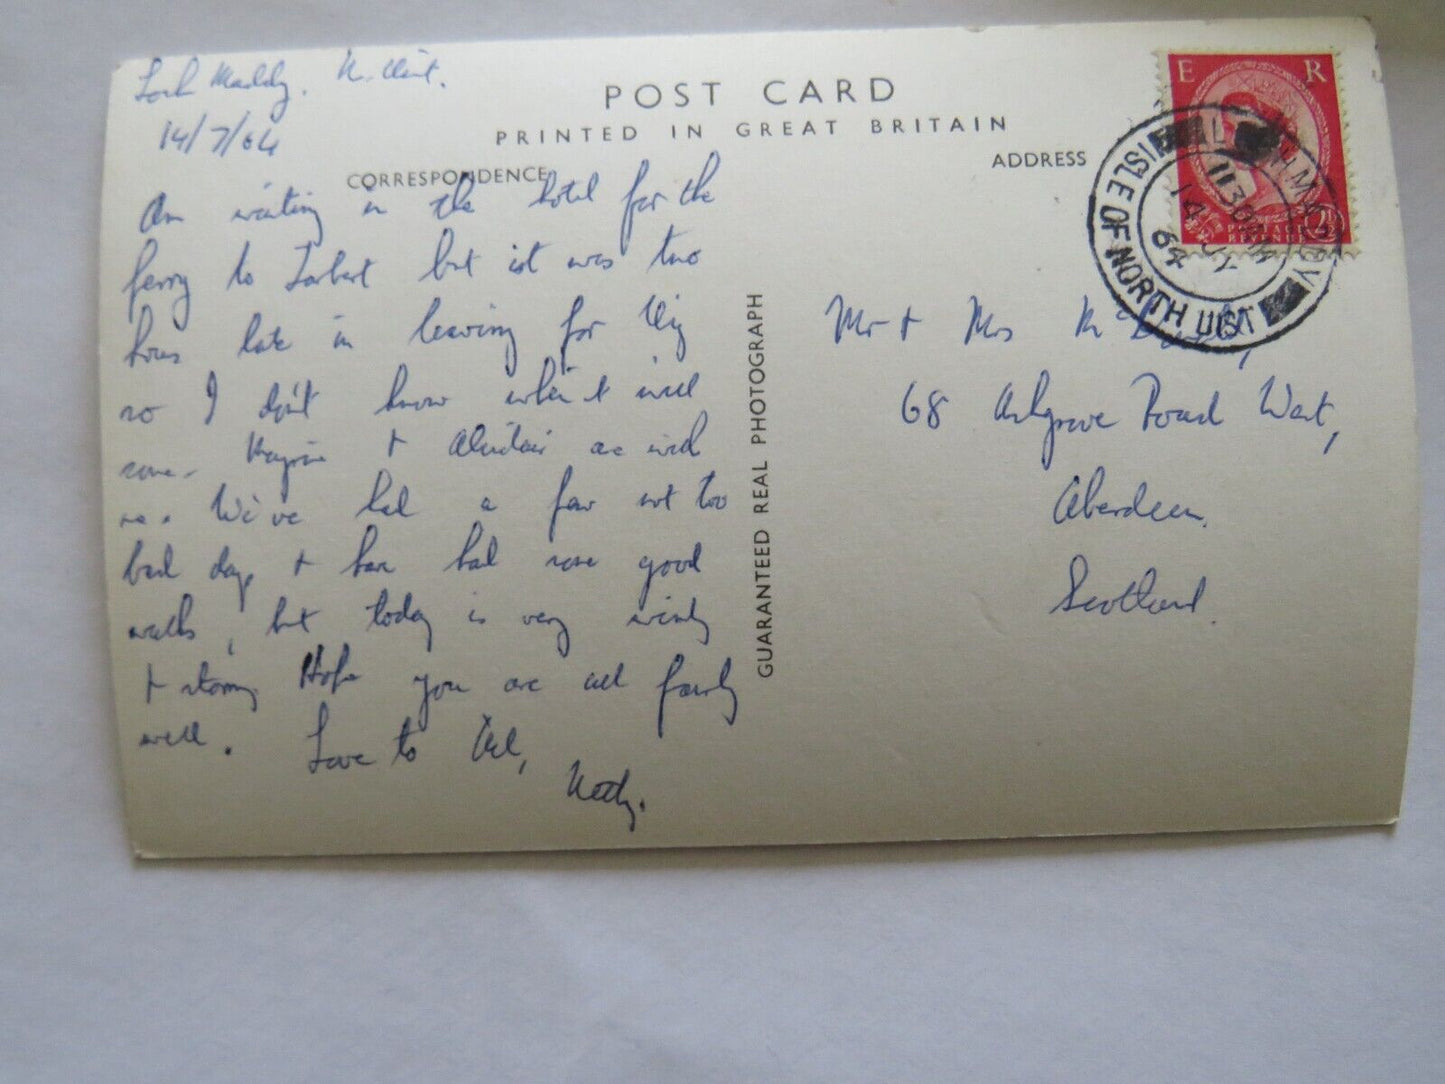 Loch Maddy. N. Uist.
14/7/64
POST CARD
PRINTED IN GREAT BRITAIN
CORRESPONDENCE
ADDRESS
Am waiting in the hotel for the
ferry to Tarbert but it was two
hours late in leaving for Uig
so I don't know when it will
come. & Alasdair are with
me. We've had a few not too
bad days & have had some good
walks, but today is very windy
& stormy Hope you are all fairly
well. Love to All,
GUARANTEED REAL PHOTOGRAPH
E R
POSTAGE
REVENUE
2½
LOCHMADDY
ISLE OF NORTH UIST
1130AM
14 JY
64
Mr & Mrs
68 Ashgrove Road West,
Aberdeen.
Scotland.